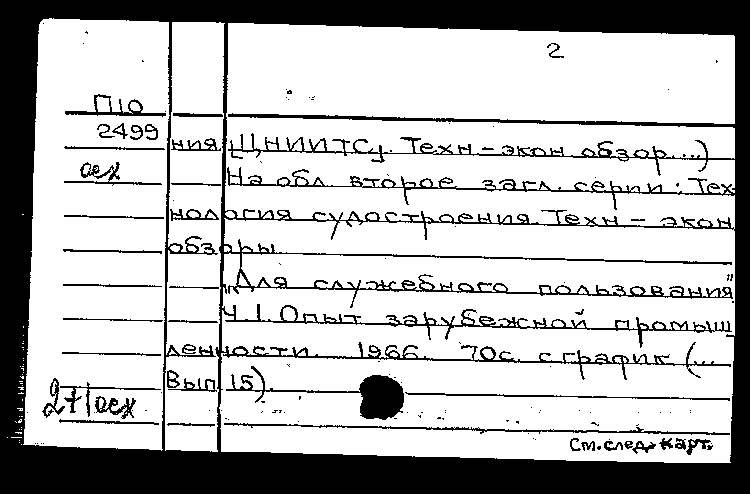 2
П10
2499
ния [ЦНИИТС]. Техн-экон обзор...)
На обл. второе загл. серии: Тех
нология судостроения. Техн - экон
обзоры.
„Для служебного пользования"
Ч.1. Опыт зарубежной промыш
ленности. 1966. 70с. с график (...
Вып. 15).
См.след. карт.